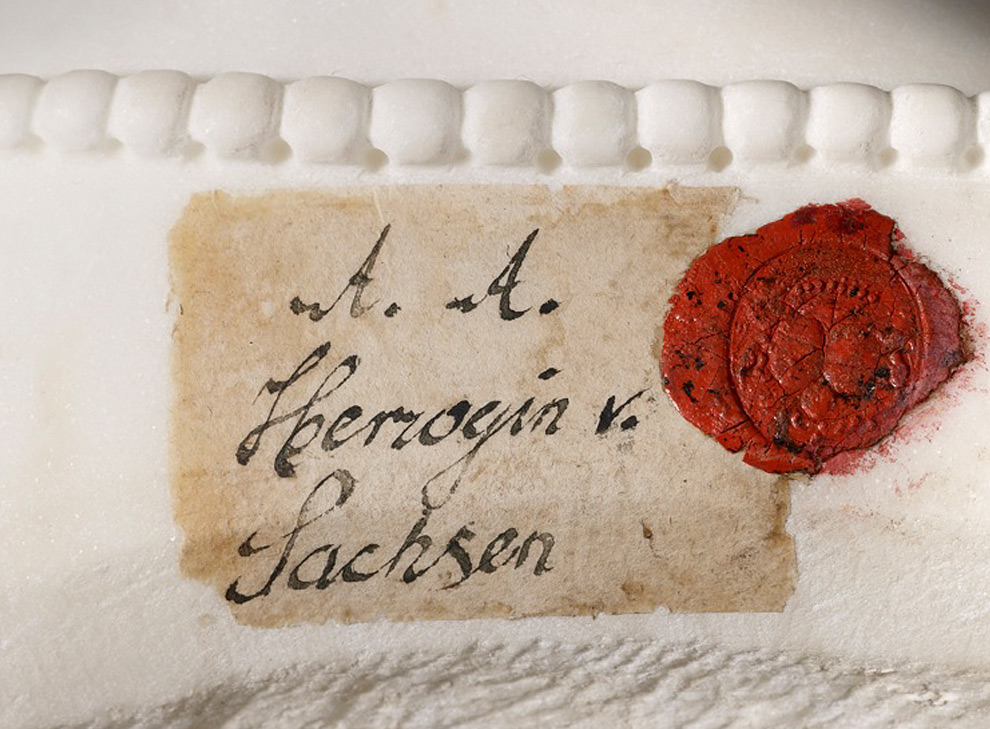 A. A.
Herzogin v.
Sachsen